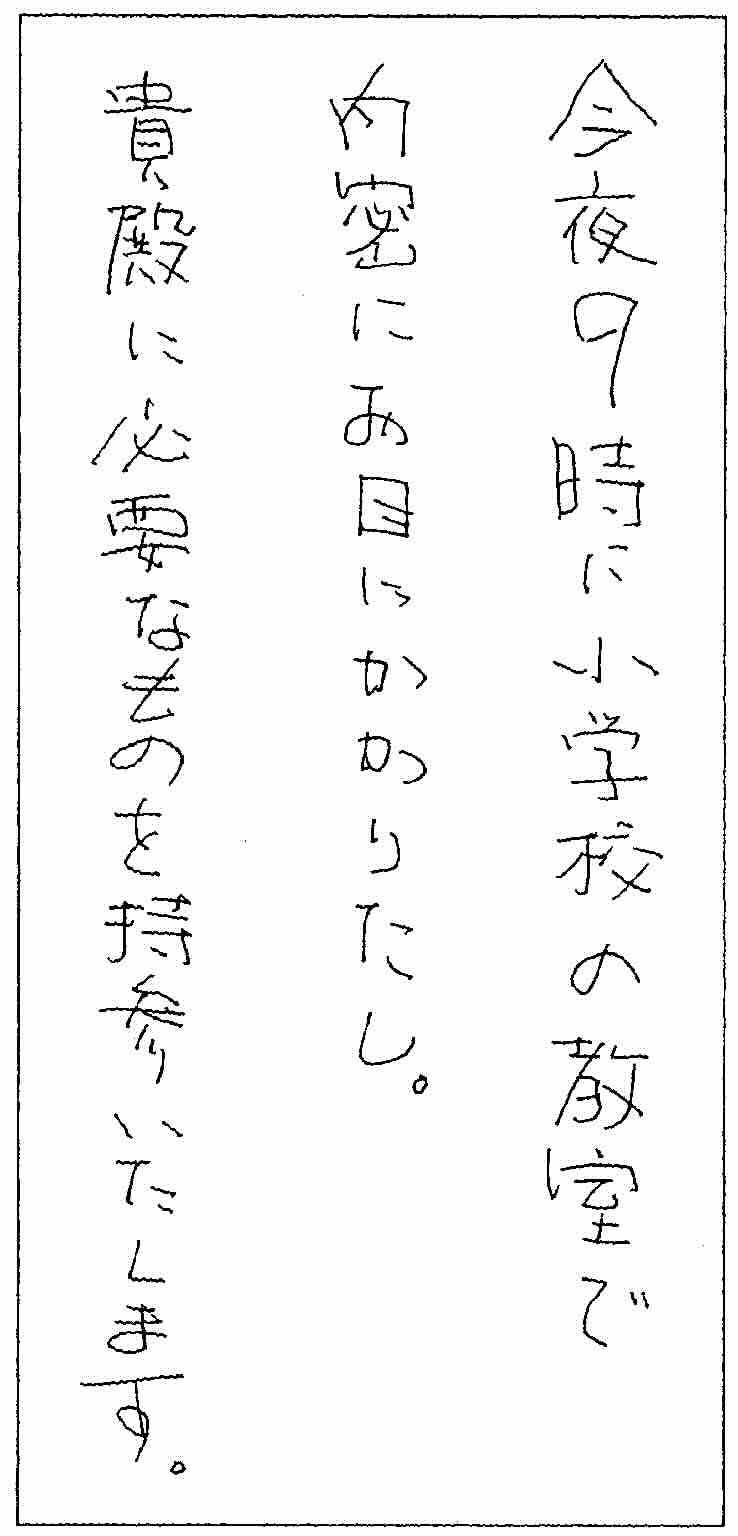 今夜9時に小学校の教室で
内密にお目にかかりたし。
貴殿に必要なものを持参いたします。